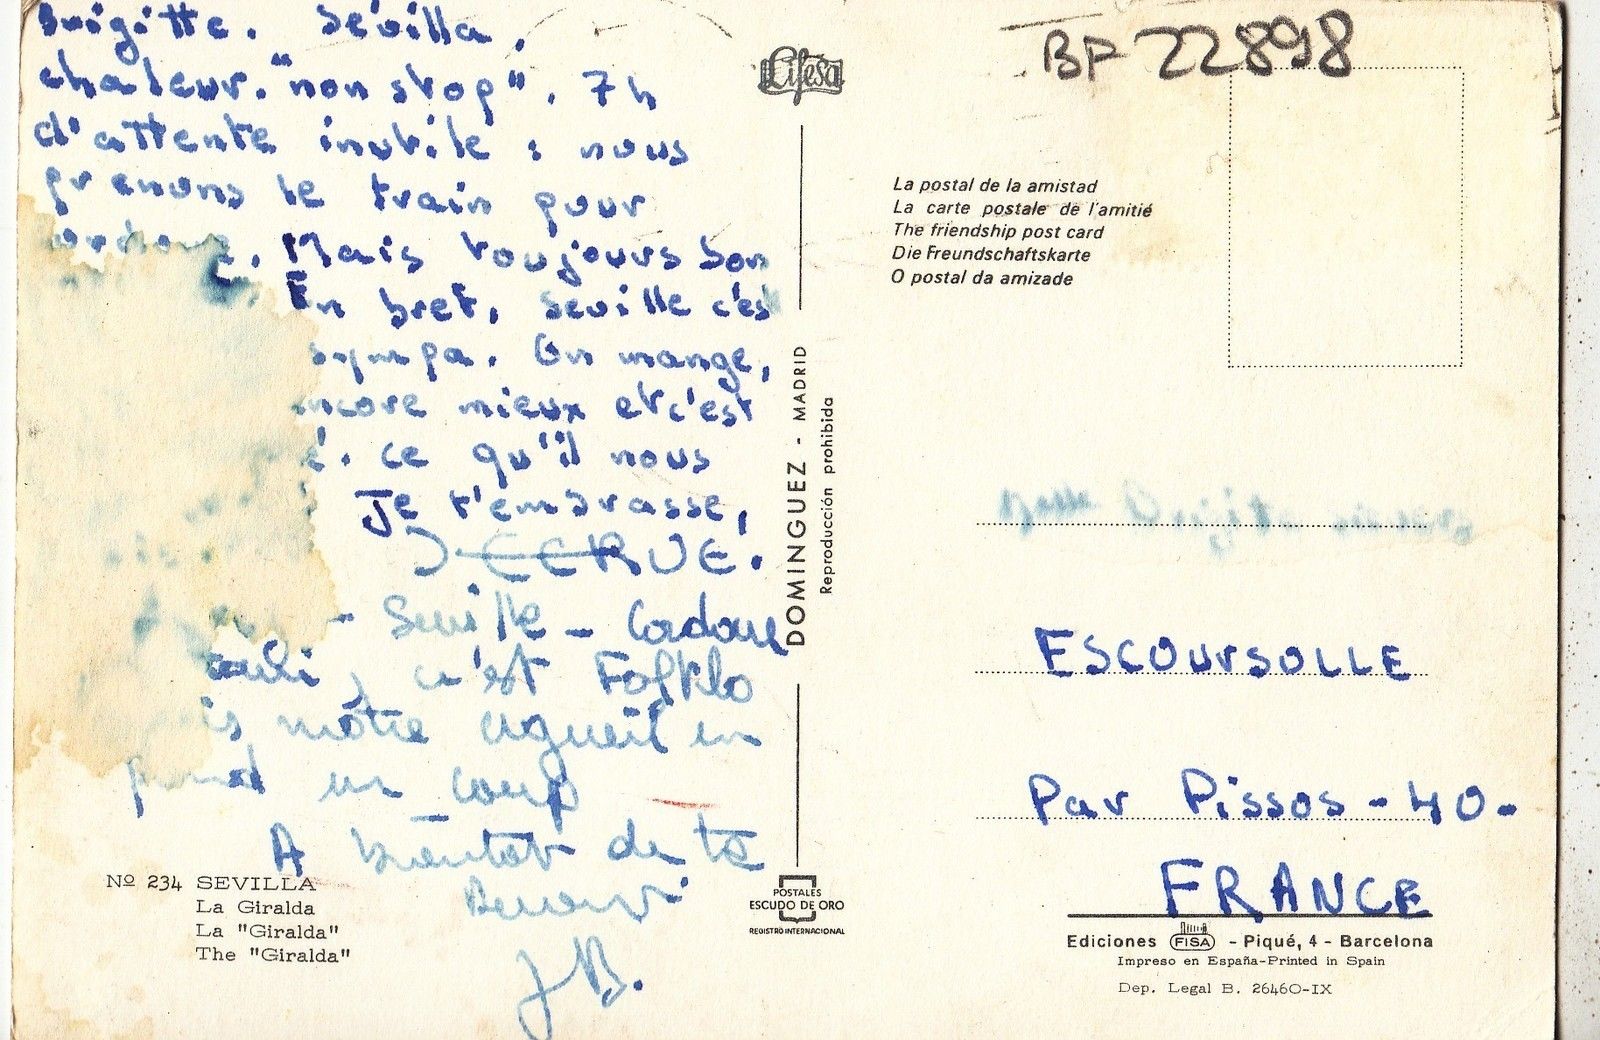 Brigitte. Sevilla,
chaleur. "non stop". 7h
d'attente inutile : nous
prenons le train pour
Mais toujours bon
En bref, Seville c'es
sympa. On mange,
encore mieux et c'est
é. ce qu'il nous
Je t'embrasse,
- Seville - Cordoue
c'est Folklo
is môtre en
prend un coup
A bientot de te
JB.
Nº 234 SEVILLA
La Giralda
La "Giralda"
The "Giralda"
Lifesa
DOMINGUEZ - MADRID
Reproducción prohibida
POSTALES
ESCUDO DE ORO
REGISTRO INTERNACIONAL
BP 22898
La postal de la amistad
La carte postale de l'amitié
The friendship post card
Die Freundschaftskarte
O postal da amizade
ESCOURSOLLE
Par Pissos - 40.
FRANCE
Ediciones FISA - Piqué, 4 - Barcelona
Impreso en España-Printed in Spain
Dep. Legal B. 26460-IX